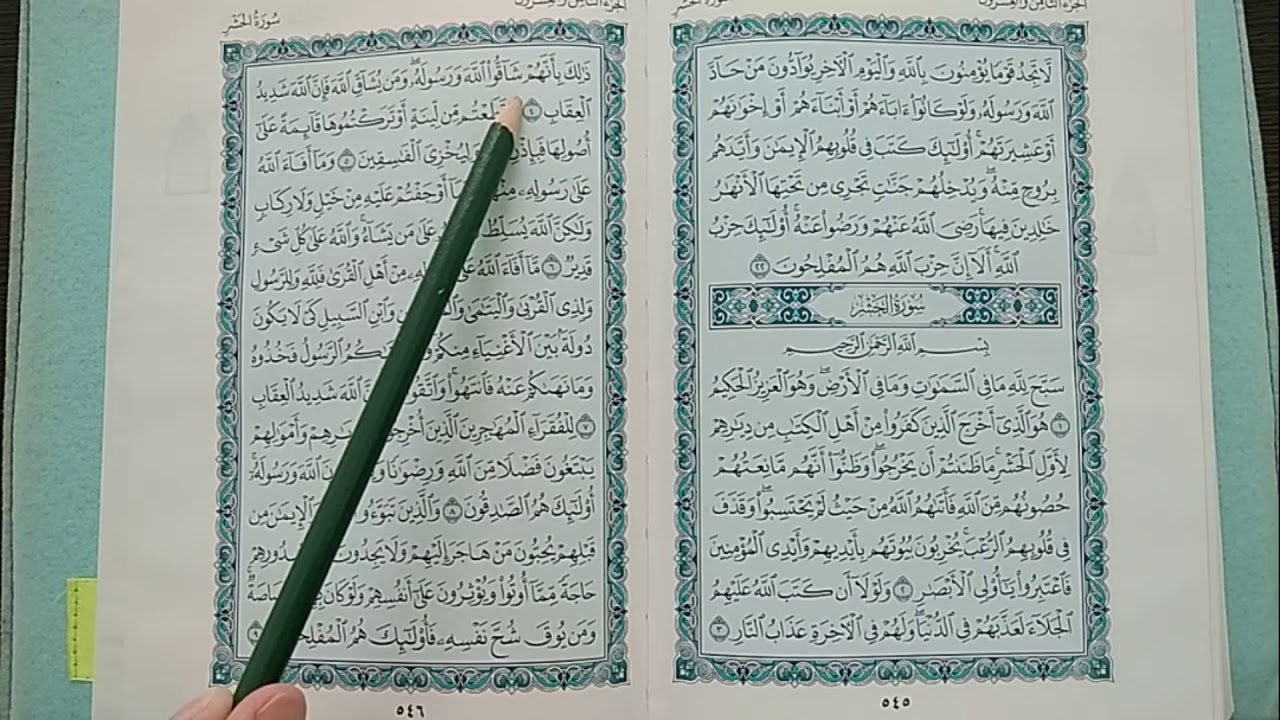 الجزء الثامن والعشرون
لَّا تَجِدُ قَوْمًا يُؤْمِنُونَ بِٱللَّهِ وَٱلْيَوْمِ ٱلْءَاخِرِ يُوَآدُّونَ مَنْ حَآدَّ
ٱللَّهَ وَرَسُولَهُۥ وَلَوْ كَانُوٓا۟ ءَابَآءَهُمْ أَوْ أَبْنَآءَهُمْ أَوْ إِخْوَٰنَهُمْ
أَوْ عَشِيرَتَهُمْ ۚ أُو۟لَٰٓئِكَ كَتَبَ فِى قُلُوبِهِمُ ٱلْإِيمَٰنَ وَأَيَّدَهُم
بِرُوحٍ مِّنْهُ ۖ وَيُدْخِلُهُمْ جَنَّٰتٍ تَجْرِى مِن تَحْتِهَا ٱلْأَنْهَٰرُ
خَٰلِدِينَ فِيهَا ۚ رَضِىَ ٱللَّهُ عَنْهُمْ وَرَضُوا۟ عَنْهُ ۚ أُو۟لَٰٓئِكَ حِزْبُ
ٱللَّهِ ۚ أَلَآ إِنَّ حِزْبَ ٱللَّهِ هُمُ ٱلْمُفْلِحُونَ ٢٢
سُورَةُ الحَشْرِ
بِسْمِ ٱللَّهِ ٱلرَّحْمَٰنِ ٱلرَّحِيمِ
سَبَّحَ لِلَّهِ مَا فِى ٱلسَّمَٰوَٰتِ وَمَا فِى ٱلْأَرْضِ ۖ وَهُوَ ٱلْعَزِيزُ ٱلْحَكِيمُ
١ هُوَ ٱلَّذِىٓ أَخْرَجَ ٱلَّذِينَ كَفَرُوا۟ مِنْ أَهْلِ ٱلْكِتَٰبِ مِن دِيَٰرِهِمْ
لِأَوَّلِ ٱلْحَشْرِ ۚ مَا ظَنَنتُمْ أَن يَخْرُجُوا۟ ۖ وَظَنُّوٓا۟ أَنَّهُم مَّانِعَتُهُمْ
حُصُونُهُم مِّنَ ٱللَّهِ فَأَتَىٰهُمُ ٱللَّهُ مِنْ حَيْثُ لَمْ يَحْتَسِبُوا۟ ۖ وَقَذَفَ
فِى قُلُوبِهِمُ ٱلرُّعْبَ ۚ يُخْرِبُونَ بُيُوتَهُم بِأَيْدِيهِمْ وَأَيْدِى ٱلْمُؤْمِنِينَ
فَٱعْتَبِرُوا۟ يَٰٓأُو۟لِى ٱلْأَبْصَٰرِ ٢ وَلَوْلَآ أَن كَتَبَ ٱللَّهُ عَلَيْهِمُ
ٱلْجَلَآءَ لَعَذَّبَهُمْ فِى ٱلدُّنْيَا ۖ وَلَهُمْ فِى ٱلْءَاخِرَةِ عَذَابُ ٱلنَّارِ ٣
٥٤٥
الجزء الثامن والعشرون سُورَةُ الحَشْرِ
ذَٰلِكَ بِأَنَّهُمْ شَآقُّوا۟ ٱللَّهَ وَرَسُولَهُۥ ۖ وَمَن يُشَآقِّ ٱللَّهَ فَإِنَّ ٱللَّهَ شَدِيدُ
ٱلْعِقَابِ ٤ قَطَعْتُم مِّن لِّينَةٍ أَوْ تَرَكْتُمُوهَا قَآئِمَةً عَلَىٰٓ
أُصُولِهَا فَبِإِذْنِ وَلِيُخْزِىَ ٱلْفَٰسِقِينَ ٥ وَمَآ أَفَآءَ ٱللَّهُ
عَلَىٰ رَسُولِهِۦ مِنْهُمْ فَمَآ أَوْجَفْتُمْ عَلَيْهِ مِنْ خَيْلٍ وَلَا رِكَابٍ
وَلَٰكِنَّ ٱللَّهَ يُسَلِّطُ عَلَىٰ مَن يَشَآءُ ۚ وَٱللَّهُ عَلَىٰ كُلِّ شَىْءٍ
قَدِيرٌ ٦ مَّآ أَفَآءَ ٱللَّهُ عَلَىٰ مِنْ أَهْلِ ٱلْقُرَىٰ فَلِلَّهِ وَلِلرَّسُولِ
وَلِذِى ٱلْقُرْبَىٰ وَٱلْيَتَٰمَىٰ وَٱبْنِ ٱلسَّبِيلِ كَىْ لَا يَكُونَ
دُولَةًۢ بَيْنَ ٱلْأَغْنِيَآءِ مِنكُمْ ۚ ٱلرَّسُولُ فَخُذُوهُ
وَمَا نَهَىٰكُمْ عَنْهُ فَٱنتَهُوا۟ ۚ وَٱتَّقُوا۟ ٱللَّهَ شَدِيدُ ٱلْعِقَابِ
٧ لِلْفُقَرَآءِ ٱلْمُهَٰجِرِينَ ٱلَّذِينَ أُخْرِجُوا۟ وَأَمْوَٰلِهِمْ
يَبْتَغُونَ فَضْلًا مِّنَ ٱللَّهِ وَرِضْوَٰنًا ٱللَّهَ وَرَسُولَهُۥٓ ۚ
أُو۟لَٰٓئِكَ هُمُ ٱلصَّٰدِقُونَ ٨ وَٱلَّذِينَ تَبَوَّءُو وَٱلْإِيمَٰنَ مِن
قَبْلِهِمْ يُحِبُّونَ مَنْ هَاجَرَ إِلَيْهِمْ وَلَا يَجِدُونَ صُدُورِهِمْ
حَاجَةً مِّمَّآ أُوتُوا۟ وَيُؤْثِرُونَ عَلَىٰٓ أَنفُسِهِمْ وَلَوْ كَانَ خَصَاصَةٌ ۚ
وَمَن يُوقَ شُحَّ نَفْسِهِۦ فَأُو۟لَٰٓئِكَ هُمُ ٱلْمُفْلِحُونَ ٩
٥٤٦